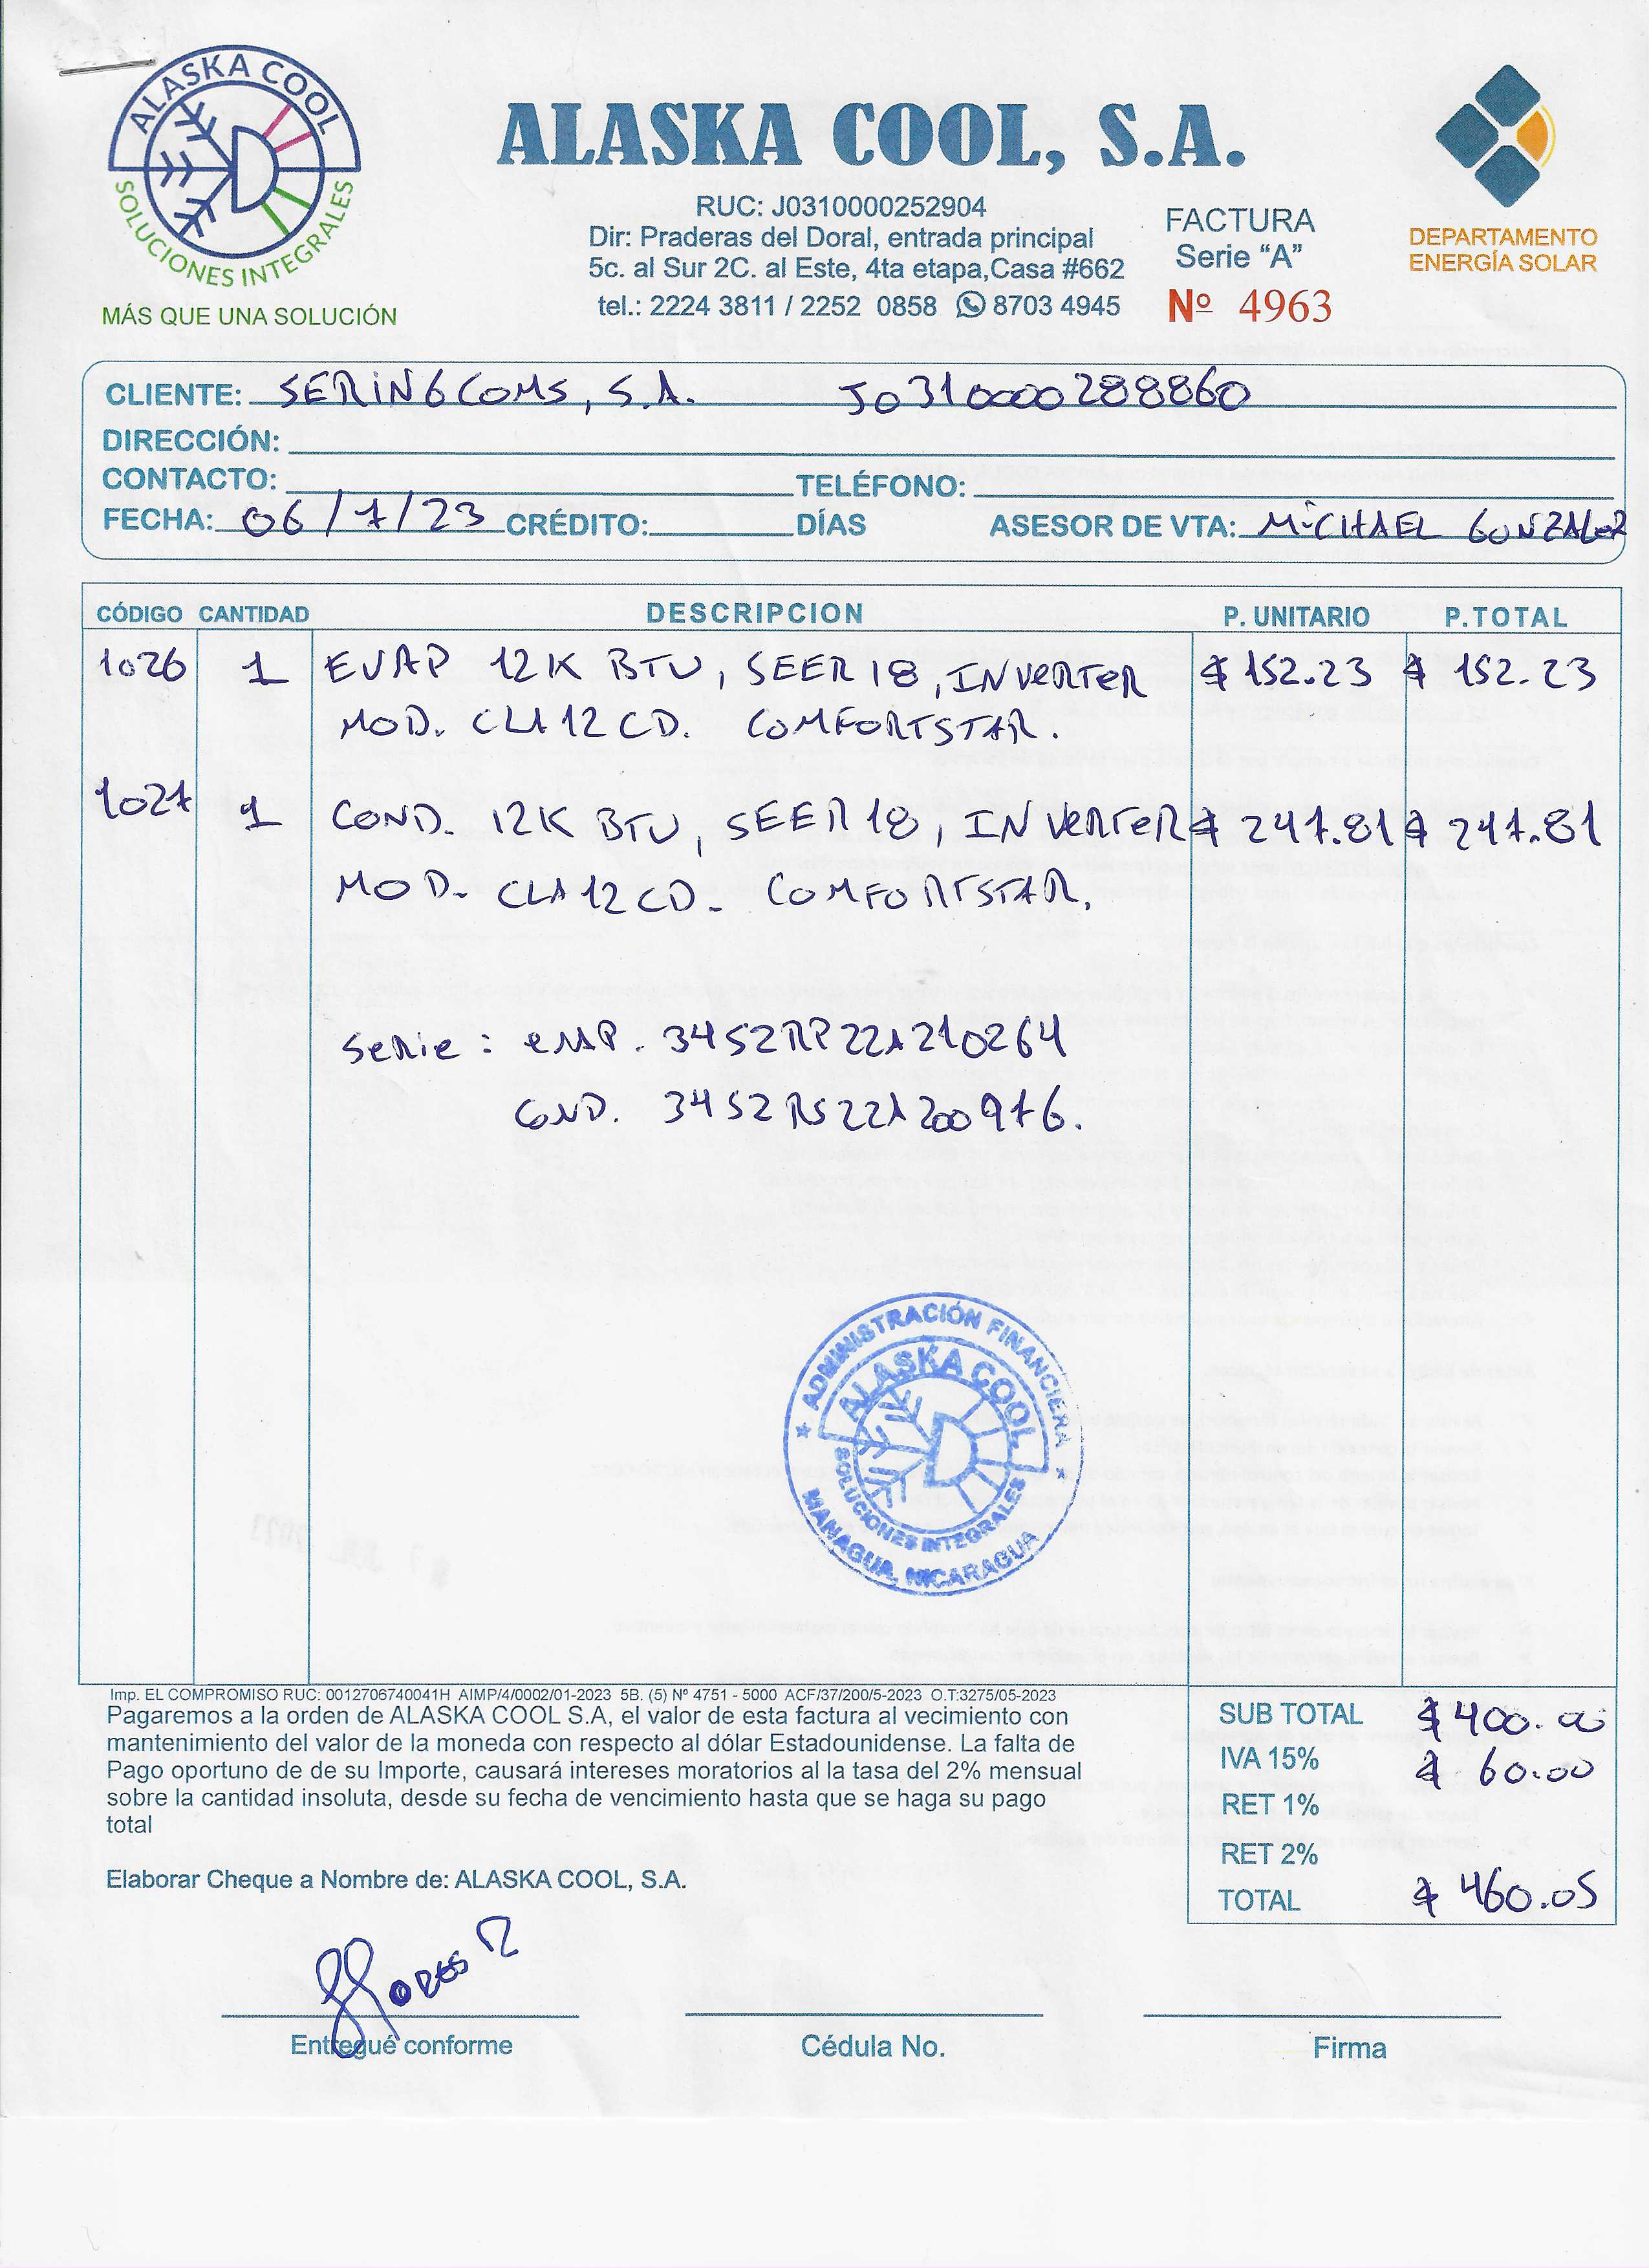 ALASKA COOL
SOLUCIONES INTEGRALES
MÁS QUE UNA SOLUCIÓN
ALASKA COOL, S.A.
RUC: J0310000252904
Dir: Praderas del Doral, entrada principal
5c. al Sur 2C. al Este, 4ta etapa,Casa #662
tel.: 2224 3811 / 2252 0858 8703 4945
FACTURA
Serie “A”
Nº 4963
DEPARTAMENTO
ENERGÍA SOLAR
CLIENTE: SERINGCOMS, S.A. J0310000288860
DIRECCIÓN:
CONTACTO: TELÉFONO:
FECHA: 06/7/23 CRÉDITO: DÍAS ASESOR DE VTA: MICHAEL GONZALEZ
CÓDIGO CANTIDAD DESCRIPCION P. UNITARIO P.TOTAL
1026 1 EVAP 12K BTU, SEER 18, INVERTER $ 152.23 $ 152.23
MOD. CLA12CD. COMFORTSTAR.
1027 1 COND. 12K BTU, SEER 18, INVERTER $ 247.81 $ 247.81
MOD. CLA12CD. COMFORTSTAR.
Serie : 3452RP22A210264
COND. 3452RS22A200976.
ADMINISTRACIÓN FINANCIERA
ALASKA COOL
SOLUCIONES INTEGRALES
MANAGUA, NICARAGUA
Imp. EL COMPROMISO RUC: 0012706740041H AIMP/4/0002/01-2023 5B. (5) Nº 4751 - 5000 ACF/37/200/5-2023 O.T:3275/05-2023
Pagaremos a la orden de ALASKA COOL S.A, el valor de esta factura al vecimiento con
mantenimiento del valor de la moneda con respecto al dólar Estadounidense. La falta de
Pago oportuno de de su Importe, causará intereses moratorios al la tasa del 2% mensual
sobre la cantidad insoluta, desde su fecha de vencimiento hasta que se haga su pago
total
Elaborar Cheque a Nombre de: ALASKA COOL, S.A.
SUB TOTAL $ 400.00
IVA 15% $ 60.00
RET 1%
RET 2%
TOTAL $ 460.05
Entregué conforme
Cédula No.
Firma